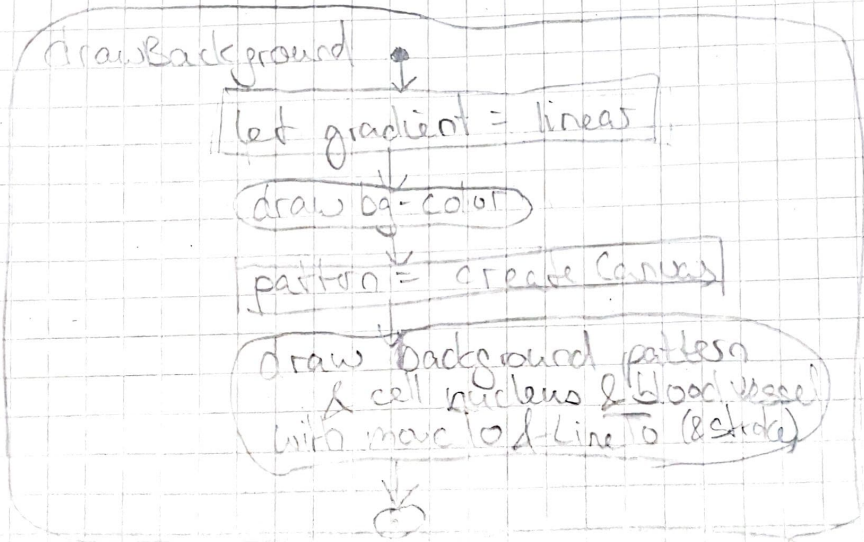 drawBackground
let gradient = linear
draw bg-color
pattern = create Canvas
draw background pattern
& cell nucleus & blood vessel
with moveTo & LineTo (& stroke)